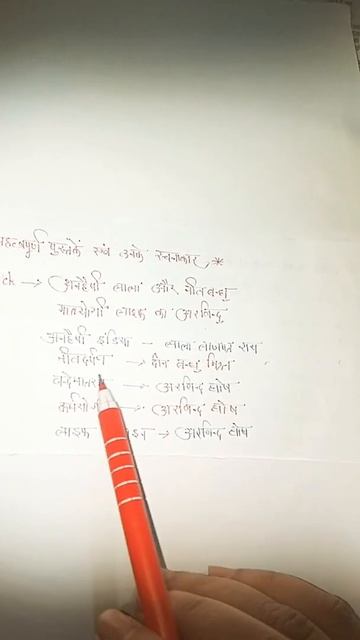 महत्वपूर्ण पुस्तकें एवं उनके रचनाकार *
ck → अनहैप्पी लाला और नील बन्धु
लाइफ का अरविन्दु
अनहैप्पी इंडिया - लाला लाजपत राय
नीलदर्पण → दीन बन्धु मित्र
वन्देमातरम → अरविन्द घोष
कर्मयोगी → अरविन्द घोष
लाइफ → अरविन्द घोष